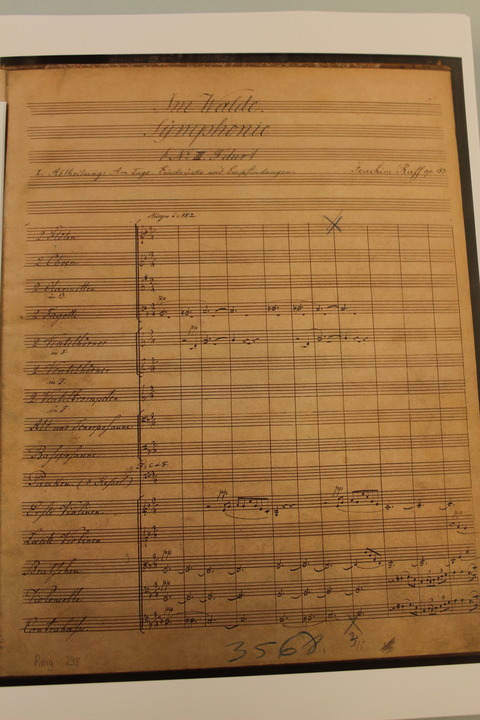 Im Walde.
Symphonie
(No. III. Fdur)
I. Abtheilung: Am Tage. Eindrücke und Empfindungen. Joachim Raff op. 153
Allegro
2 Flöten
2 Oboen
2 Clarinetten
2 Fagotte
2 Ventilhörner
in F.
2 Ventilhörner
in F.
2 Ventiltrompeten
in F.
Alt und Tenorposaune
Bassposaune
Pauken
Erste Violinen
Zweite Violinen
Bratschen
Violoncelle
Contrabässe
3568
Rmg 298